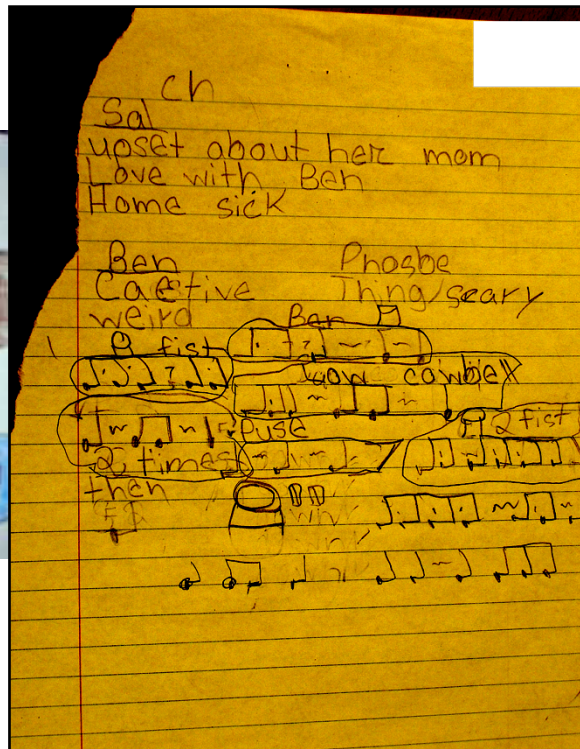 ch
Sal
upset about her mom
Love with Ben
Home sick
Ben
weird
Phosbe
Thing/scary
Ben
fist
cow cowbell
Puse
2 fist
2 times
then